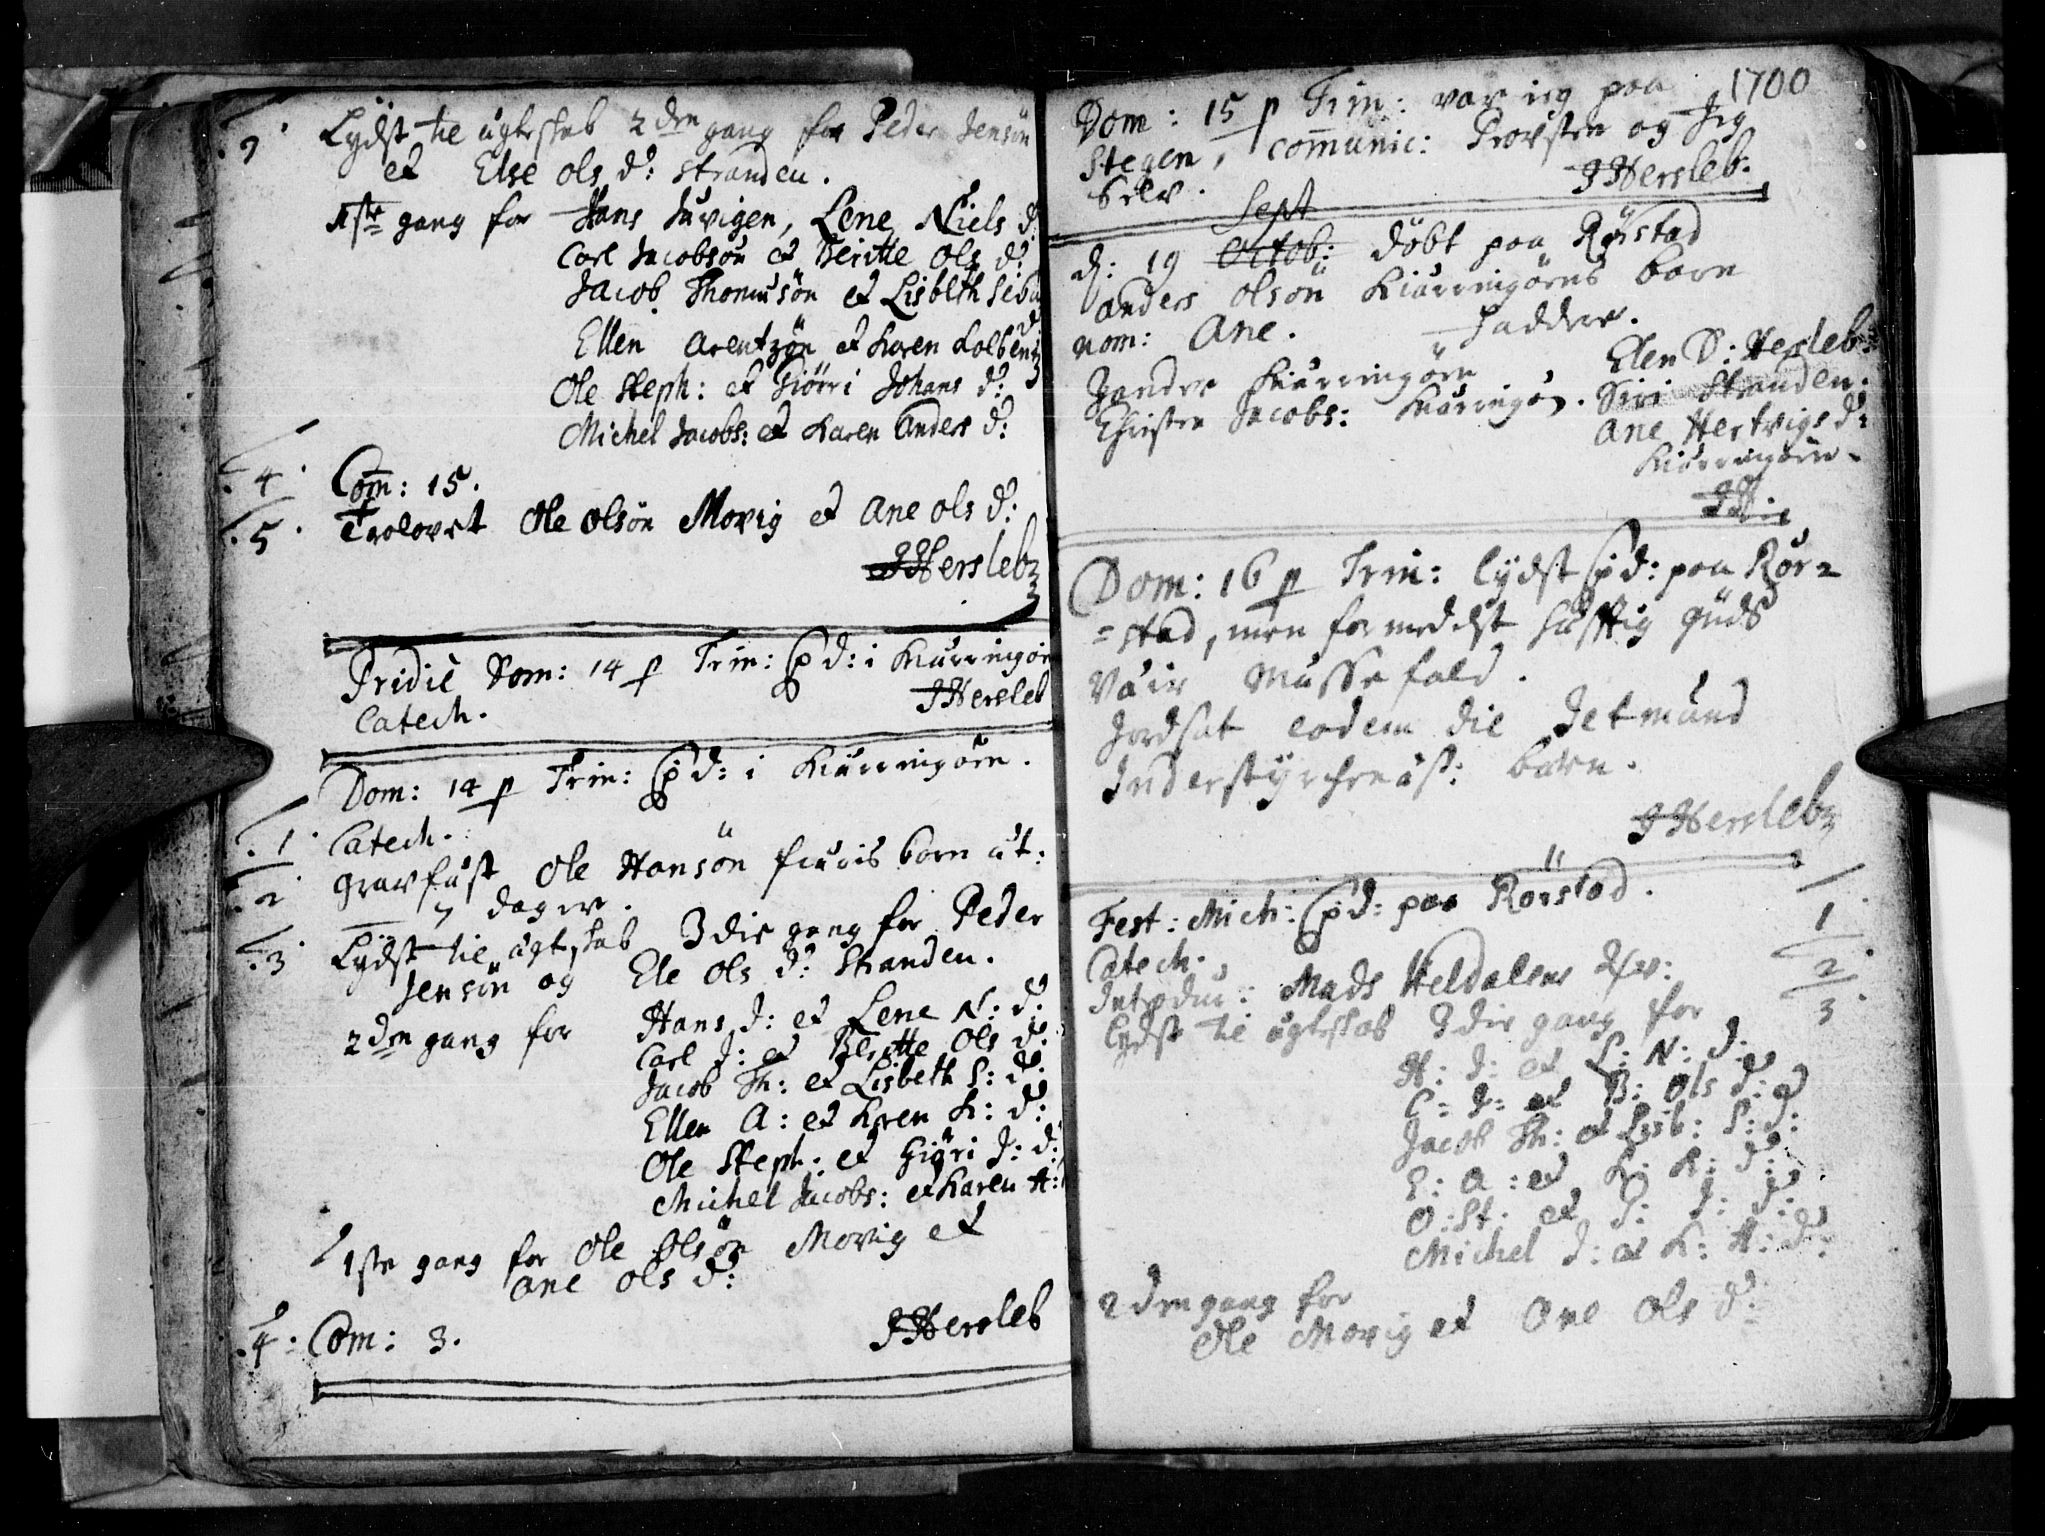 Lydst til ägteskab 2den gang for Peder Jensön
et Else Ols D: Stranden.
1ste gang for Hans Juvigen, Lene Niels D:
Carl Jacobsön et Beritte Ols D:
Jacob Thomasön et Lisbeth
Ellen Arentzön et Karen Kolbens
D:
Ole Steph: et Giörri Johans D:
Michel Jacobs: et Karen Anders D:
.4. Com̄: 15.
.5. Trolovet Ole Olsön Morig et Ane Ols D:
JHersleb
Pridie Dom: 14 p Trin: Pd: i Kierringön
Catech. JHersleb
Dom: 14 p Trin: Pd: i Kierringöen.
.1. Catech.
.2. Gravfäst Ole Hansön barn æt:
7 dager.
.3. Lydst til ägteskab 3die gang for Peder
Jensön og Ele Ols D: Stranden.
2den gang for Hans J: et Lene N: D:
Carl J: et Beritte Ols D:
Jacob Th: et Lisbeth S: D:
Ellen A: et Karen K: D:
Ole Steph: et Giöri J: D:
Michel Jacobs: et Karen A:
1ste gang for Ole Olsön Morig et
Ane Ols D:
.4. Com: 3. JHersleb
1700
Dom: 15 p Trin: var jeg paa
Stegen, com̄unic: Provsten og Jeg
Selv. JHersleb.
Sept
D: 19 Octob: döbt paa Rörstad
Anders Olsön Kierringöens barn
nom: Ane. Fadder.
Elen D: Hersleb:
Kierringöen Siri Stranden.
Christen Jacobs: Kierringö. Ane Hertvigs D:
Kierringöen.
JH.
Dom: 16 p Trin: lydst Pd: paa Rör=
=stad, men formedelst hefftig Guds
Väir Messefald.
Jordsat eodem die Jetmund
barn.
JHersleb
Fest: Mich: Pd: paa Rörstad.
Catech. 1
Introdu: Mads Heldalens 2
Lydst til ägteskab 3die gang for 3
H: J: et L: N: D:
C: J: et B: Ols D: et
Jacob Th: et Lisb: S: D:
E: A: et K: K: D:
O: St: et J: D:
Michel J: et K: A: D:
2den gang for
Ole Morig et Ane Ols D: